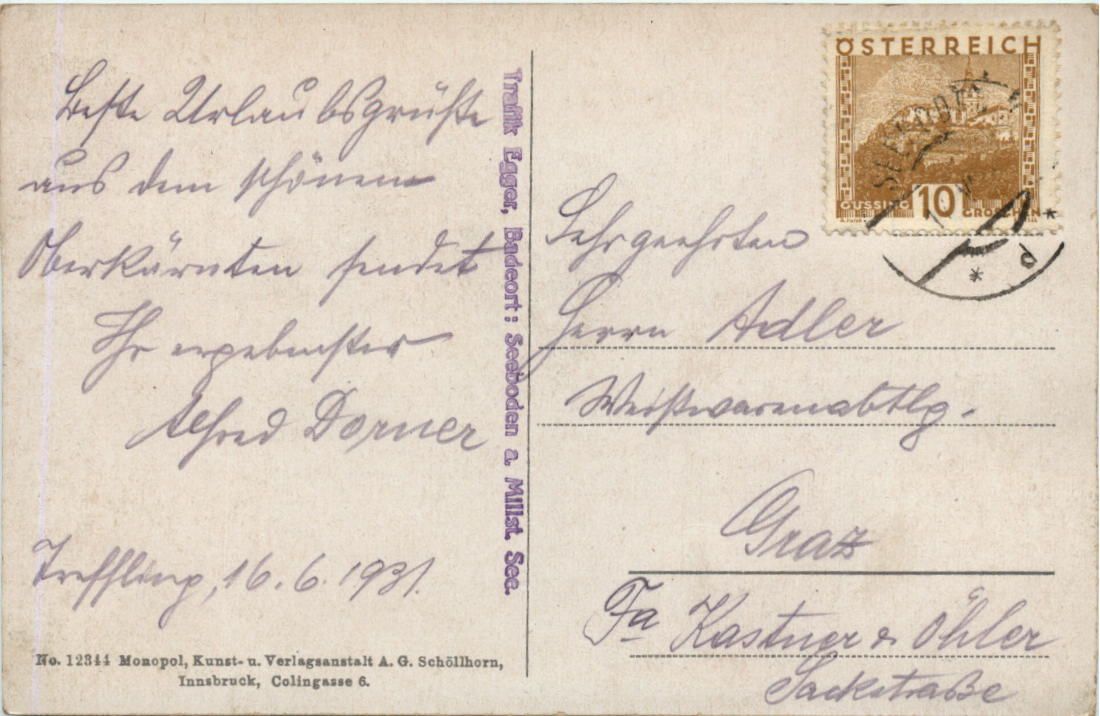 Beste Urlaubsgrüße
aus dem schönen
Oberkärnten sendet
Ihr ergebenster
Alfred Dorner
Treffling, 16.6.1931.
No. 12344 Monopol, Kunst- u. Verlagsanstalt A. G. Schöllhorn,
Innsbruck, Colingasse 6.
Trafik Egger, Badeort: Seeboden a. Millst. See.
ÖSTERREICH
GÜSSING 10 GROSCHEN
Sehrgeehrten
Herrn Adler
Weißwarenabtlg.
Graz
Fa Kastner & Öhler
Sackstraße